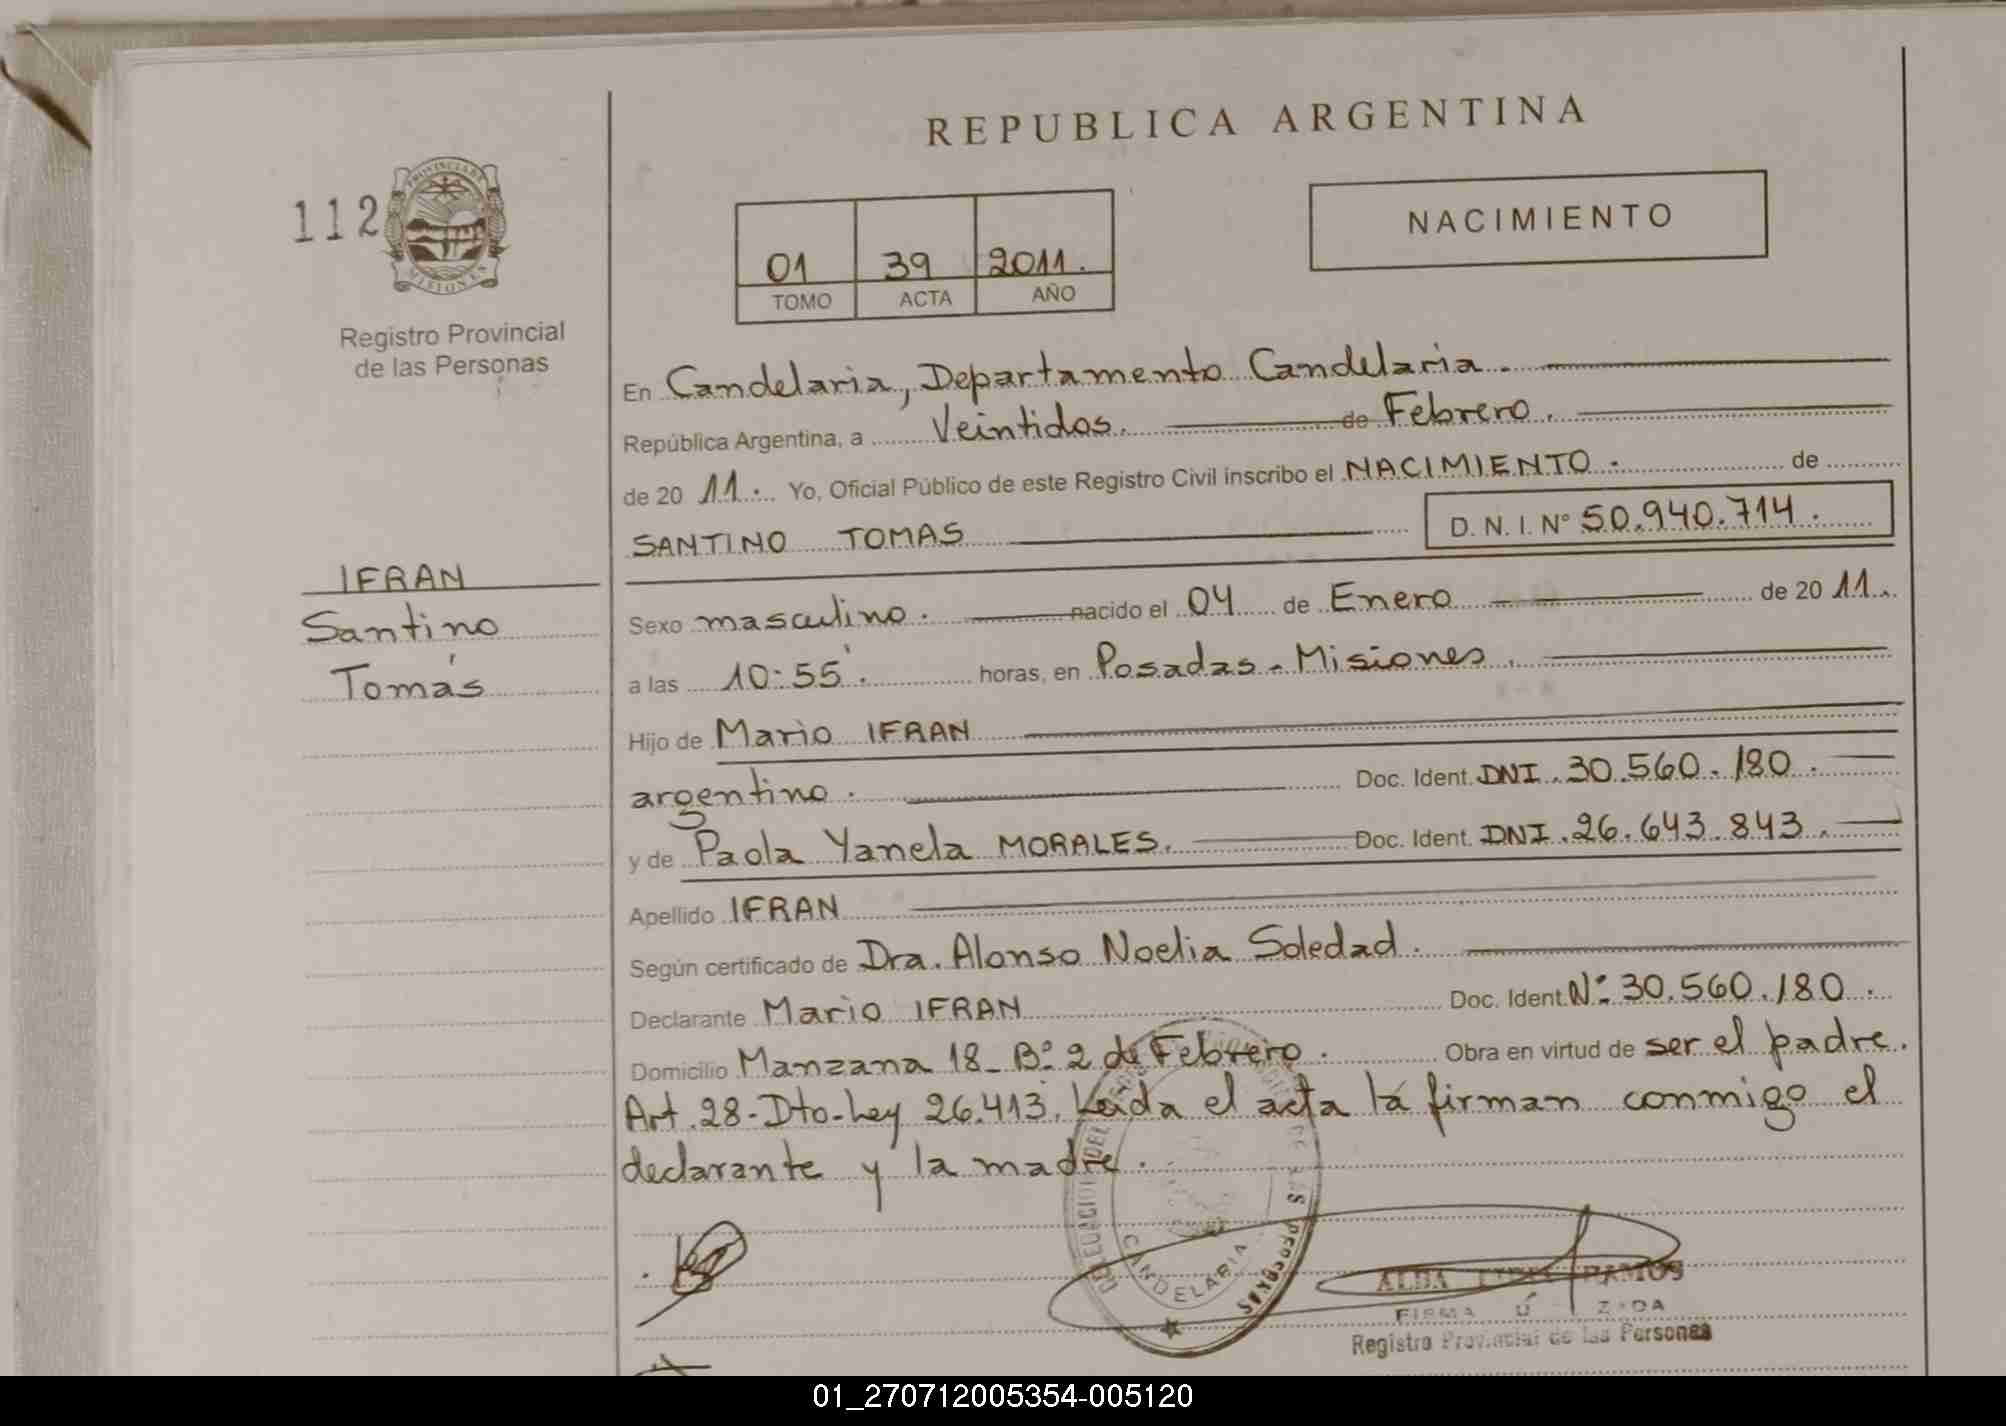 REPUBLICA ARGENTINA
112
PROVINCIA DE MISIONES
Registro Provincial
de las Personas
01 39 2011.
TOMO ACTA AÑO
NACIMIENTO
En Candelaria, Departamento Candelaria.
República Argentina, a Veintidos. de Febrero.
de 20 11. Yo, Oficial Público de este Registro Civil inscribo el NACIMIENTO. de
SANTINO TOMAS D. N. I. N° 50.940.714.
IFRAN
Santino
Tomás
Sexo masculino. nacido el 04 de Enero de 20 11.
a las 10:55'. horas, en Posadas - Misiones.
Hijo de Mario IFRAN
argentino. Doc. Ident. DNI. 30.560.180.
y de Paola Yanela MORALES. Doc. Ident. DNI. 26.643.843.
Apellido IFRAN
Según certificado de Dra. Alonso Noelia Soledad.
Declarante Mario IFRAN Doc. Ident. N°: 30.560.180.
Domicilio Manzana 18 - B° 2 de Febrero. Obra en virtud de ser el padre.
Art. 28 - Dto-Ley 26.413. Leída el acta la firman conmigo el
declarante y la madre.
CANDELARIA
LAS PERSONAS
ALBA RAMOS
FIRMA
Registro Provincial de las Personas
01_270712005354-005120